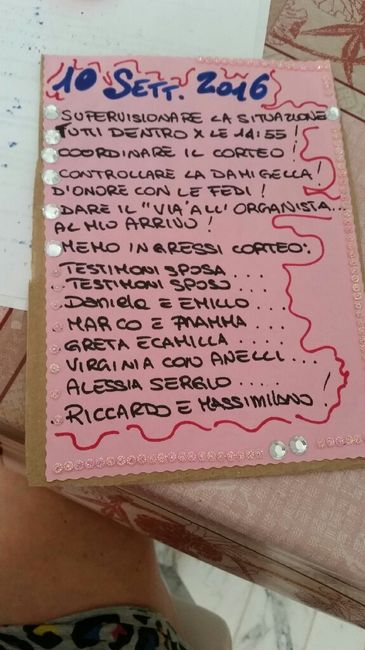 10 SETT. 2016
SUPERVISIONARE LA SITUAZIONE
TUTTI DENTRO X LE 14:55!
COORDINARE IL CORTEO!
CONTROLLARE LA DAMIGELLA
D'ONORE CON LE FEDI!
DARE IL "VIA" ALL' ORGANISTA...
AL MIO ARRIVO!
MEMO INGRESSI CORTEO:
TESTIMONI SPOSA....
TESTIMONI SPOSO....
Daniela E EMILIO....
MARCO E MAMMA....
GRETA E CAMILLA....
VIRGINIA CON ANELLI....
ALESSIA SERGIO....
RICCARDO E MASSIMILIANO!